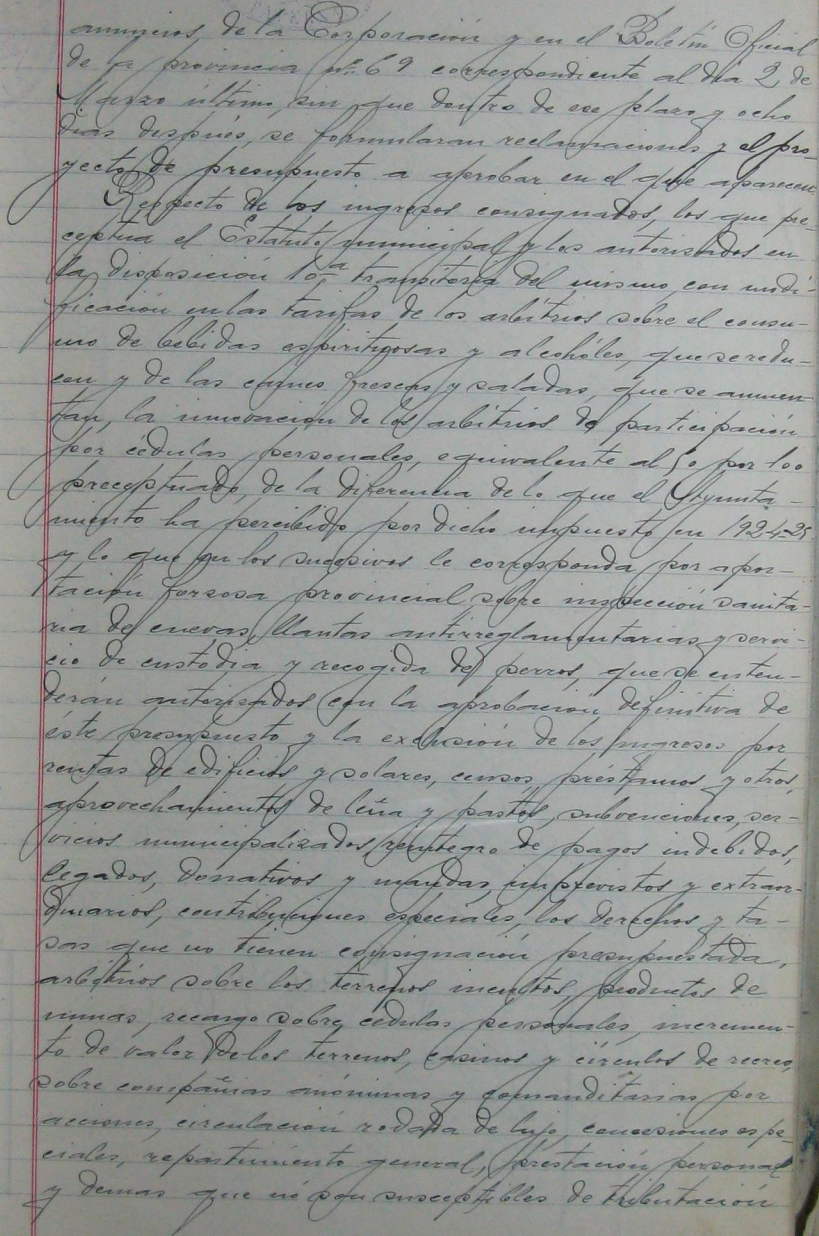 anuncios de la Corporación y en el Boletín Oficial
de la provincia nº 69 correspondiente al día 2 de
Marzo último, sin que dentro de ese plazo y ocho
días después, se formularan reclamaciones y el pro-
yecto de presupuesto a aprobar en el que aparecen
Respecto de los ingresos consignados, los que pre-
ceptua el Estatuto municipal y los autorizados en
la disposición 10ª transitoria del mismo con modi-
ficación en las tarifas de los arbitrios sobre el consu-
mo de bebidas espirituosas y alcohóles, que se redu-
cen y de las carnes frescas y saladas, que se aumen-
tan, la innovación de los arbitrios de participación
por cédulas personales, equivalente al 50 por 100
preceptuado, de la diferencia de lo que el Ayunta-
miento ha percibido por dicho impuesto en 1924-25
y lo que en los sucesivos le corresponda por apor-
tación forzosa provincial sobre inspección sanita-
ria de cuevas, llantas antirreglamentarias y servi-
cio de custodia y recogida de perros, que se enten-
derán autorizados con la aprobación definitiva de
éste presupuesto y la exclusión de los ingresos por
rentas de edificios y solares, censos, préstamos y otros,
aprovechamientos de leña y pastos, subvenciones, ser-
vicios municipalizados reintegro de pagos indebidos,
legados, donativos y mandas, imprevistos y extraor-
dinarios, contribuciones especiales, los derechos y ta-
sas que no tienen consignación presupuestada,
arbitrios sobre los terrenos incultos, productos de
minas, recargo sobre cédulas personales, incremen-
to de valor de los terrenos, casinos y círculos de recreo,
sobre compañias anónimas y comanditarias por
acciones, circulación rodada de lujo, concesiones espe-
ciales, repartimiento general, prestación personal
y demas que no son susceptibles de tributación